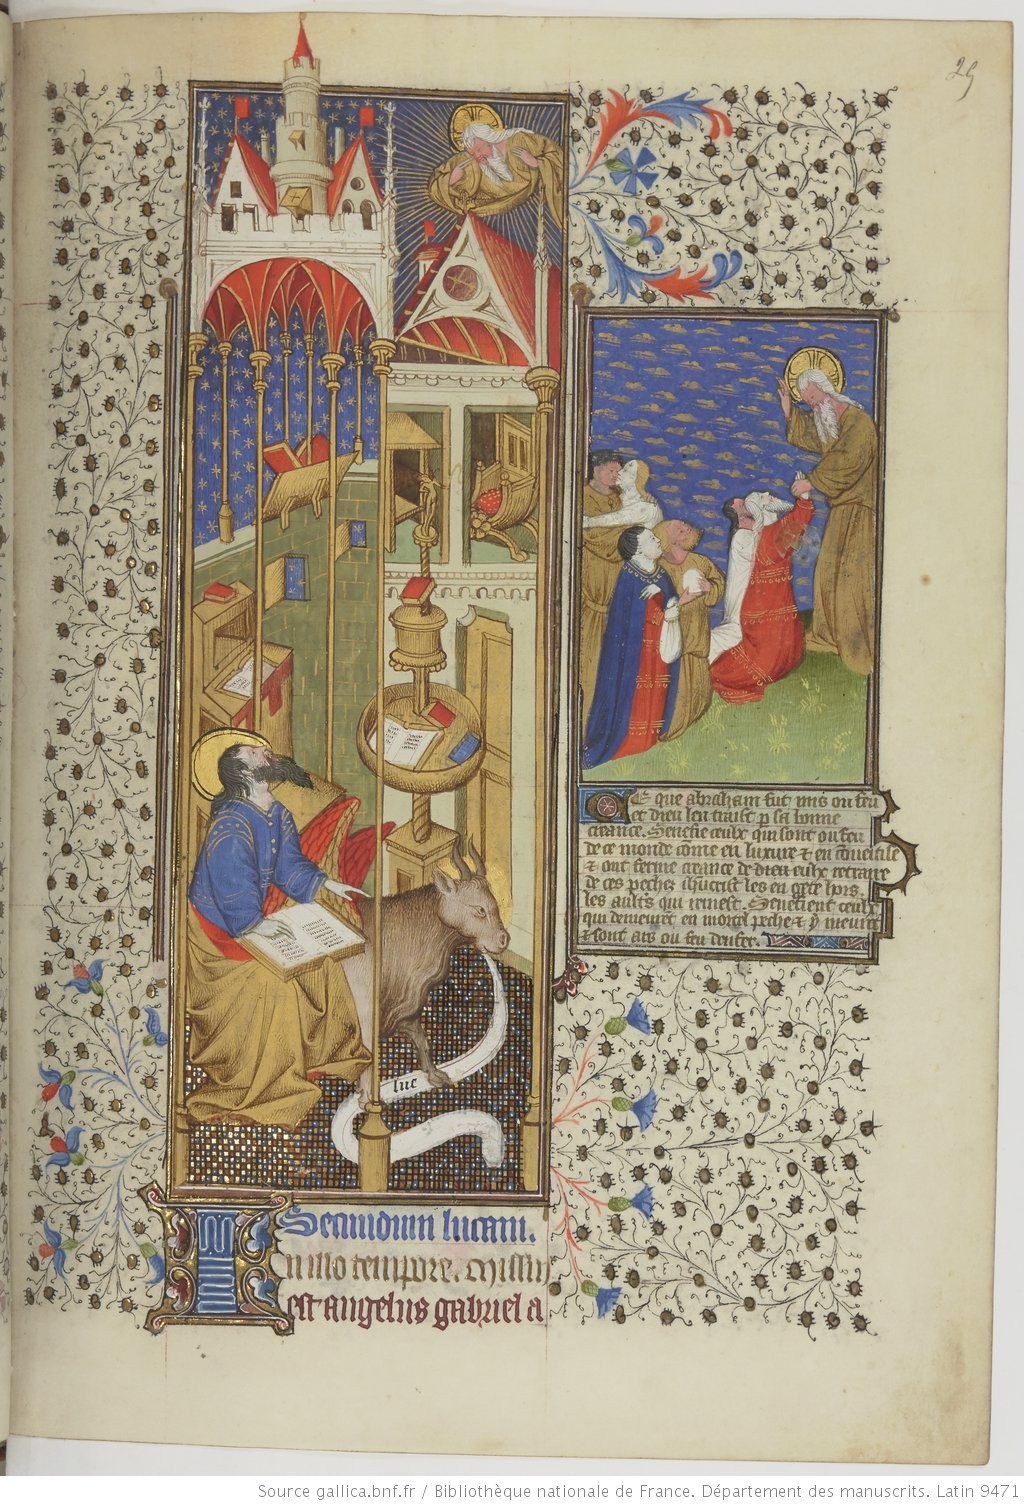 25
luc
Secundum lucam.
In illo tempore. Missus
est angelus gabriel a
Ce que abraham fut mis ou feu
et dieu len traist p sa bonne
creance. Senefie ceulx qui sont ou feu
de ce monde come en luxure & en coveitise
& ont ferme creance de dieu eulx retraire
de ces pechez ihucrist les en gete hors.
les aultres qui Senefient ceulx
qui demeurent en mortel peche & y meurent
& sont ars ou feu denfer.
Source gallica.bnf.fr / Bibliothèque nationale de France. Département des manuscrits. Latin 9471